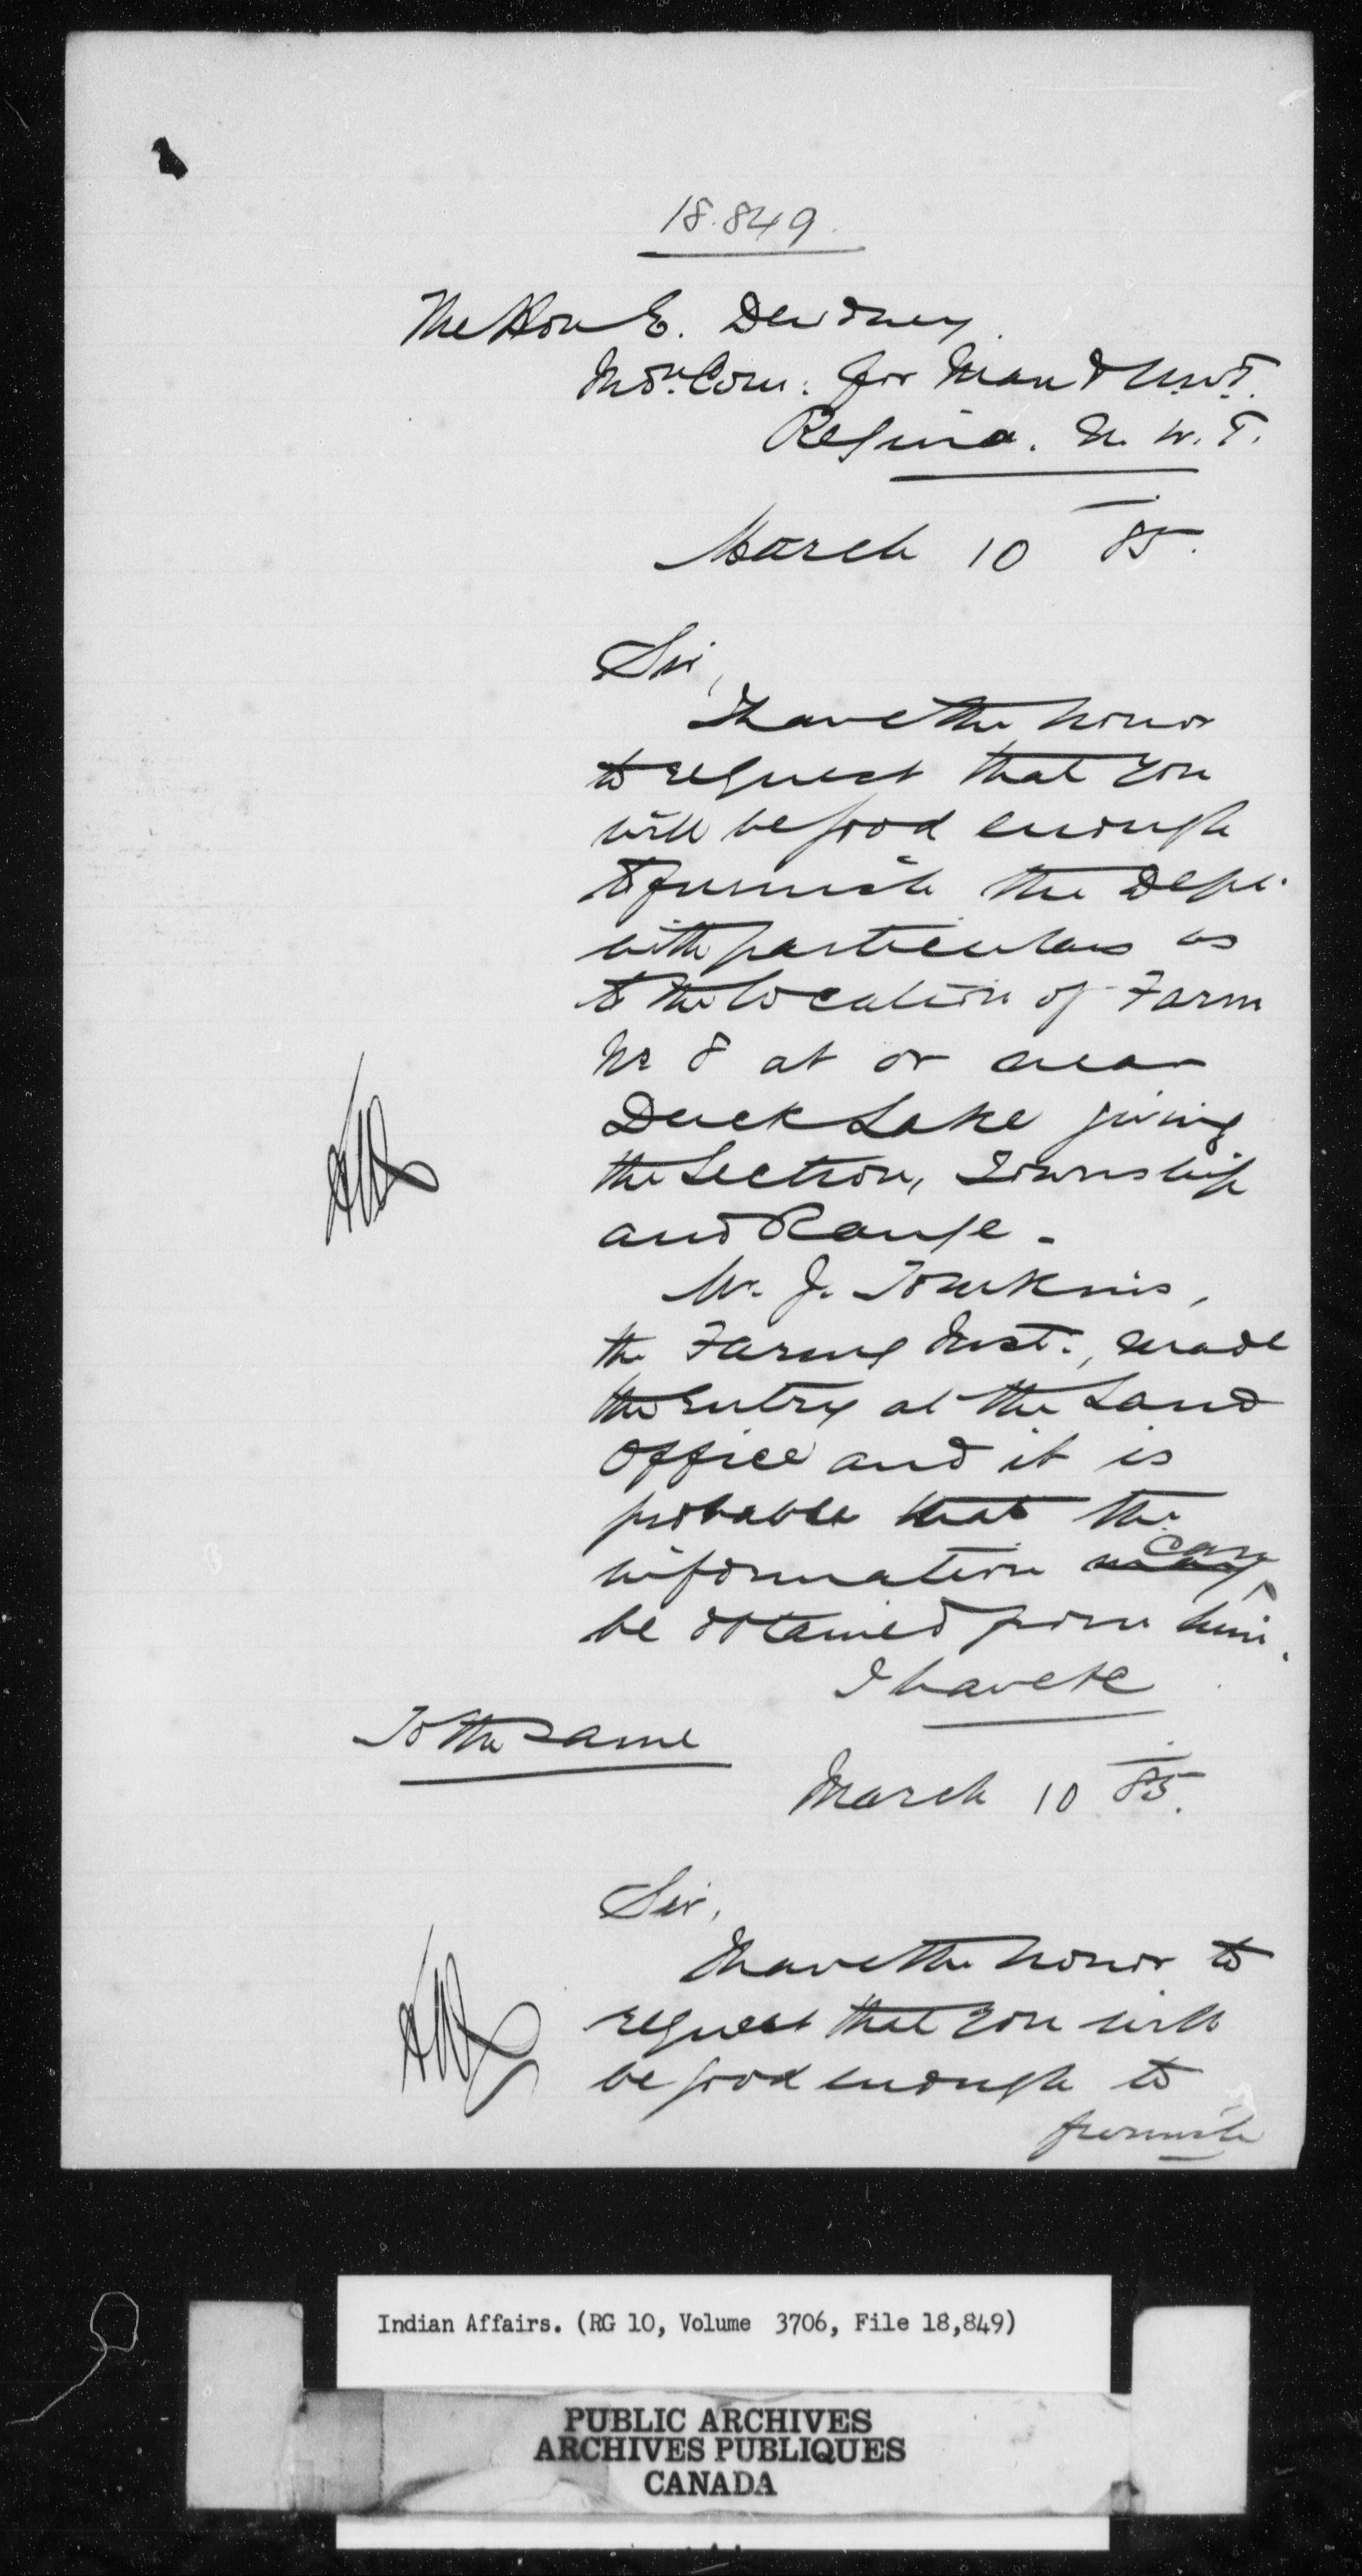 18.849.
The Hon E. Dewdney.
Indn. Com: for Man & N.W.T.
Regina. N. W. T.
March 10 85.
Sir,
I have the honor
to request that you
will be good enough
to furnish the Dept.
with particulars as
to the location of Farm
No 8 at or near
Duck Lake giving
the Section, Township
and Range.
Mr. J. Tomkins,
the Farming Inst:, made
the entry at the Land
Office and it is
probable that the
can
information may
be obtained from him.
I have &c
To the same
March 10 85.
Sir,
I have the honor to
request that you will
be good enough to
furnish
Indian Affairs. (RG 10, Volume 3706, File 18,849)
PUBLIC ARCHIVES
ARCHIVES PUBLIQUES
CANADA